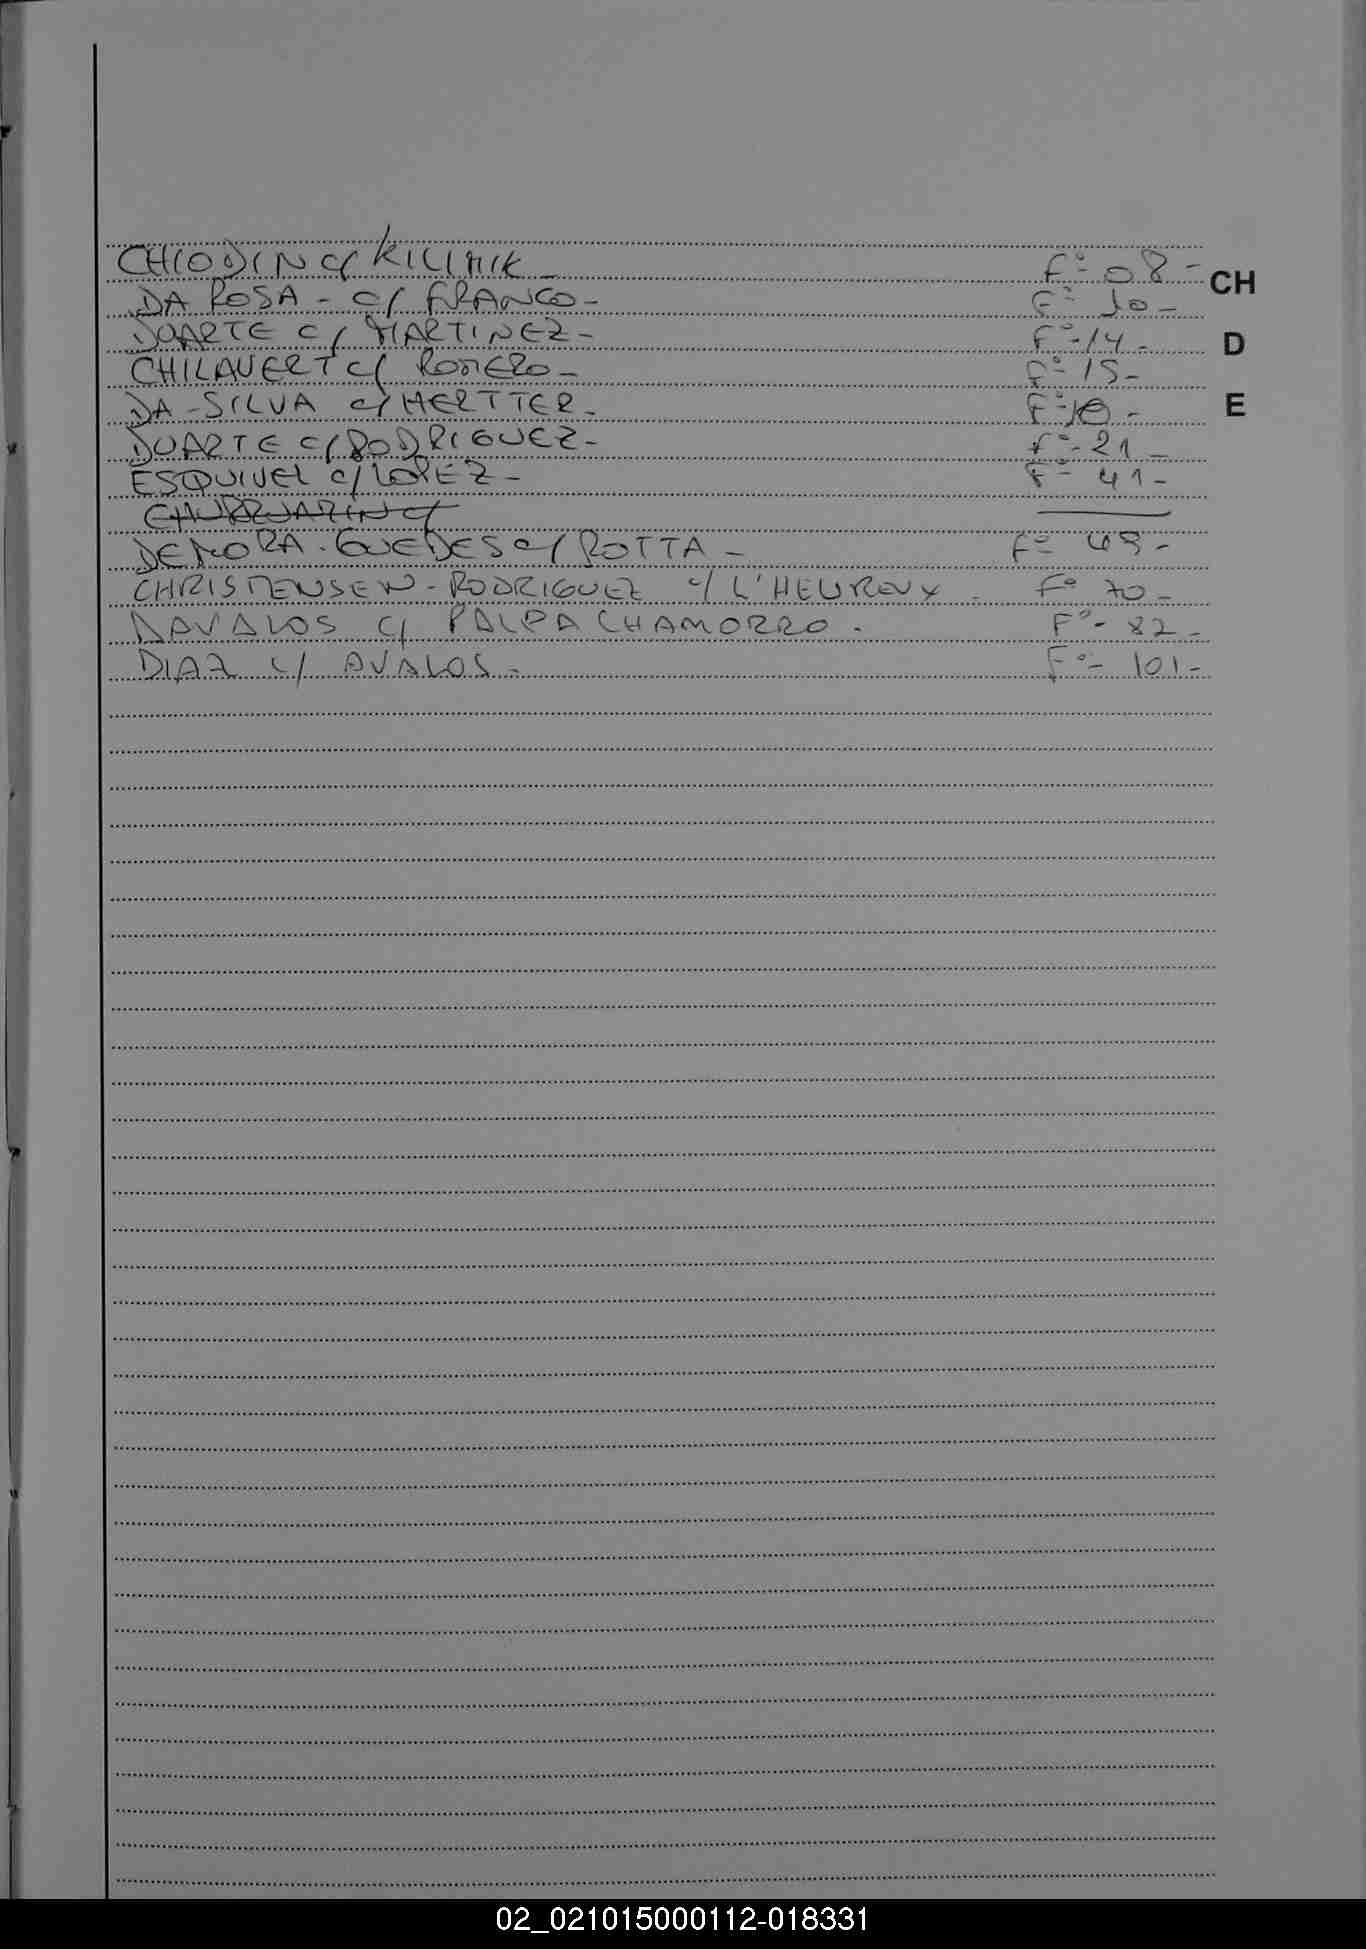 CHIODIN c/ KILIMIK - Fº- 08 - CH
DA ROSA - c/ FRANCO - Fº- 10 -
DUARTE c/ MARTINEZ - Fº- 14 - D
CHILAVERT c/ ROMERO - Fº- 15 -
DA - SILVA c/ HERTTER - Fº- - E
DUARTE c/ RODRIGUEZ - Fº- 21 -
ESQUIVEL c/ LOPEZ - Fº- 41 -
CHURRUARIN c/
DEMORA - GUEDES c/ ROTTA - Fº- 49 -
CHRISTENSEN - RODRIGUEZ c/ L'HEUREUX - Fº 70 -
DAVALOS c/ PALPA CHAMORRO - Fº- 82 -
DIAZ c/ AVALOS - Fº- 101 -
02_021015000112-018331